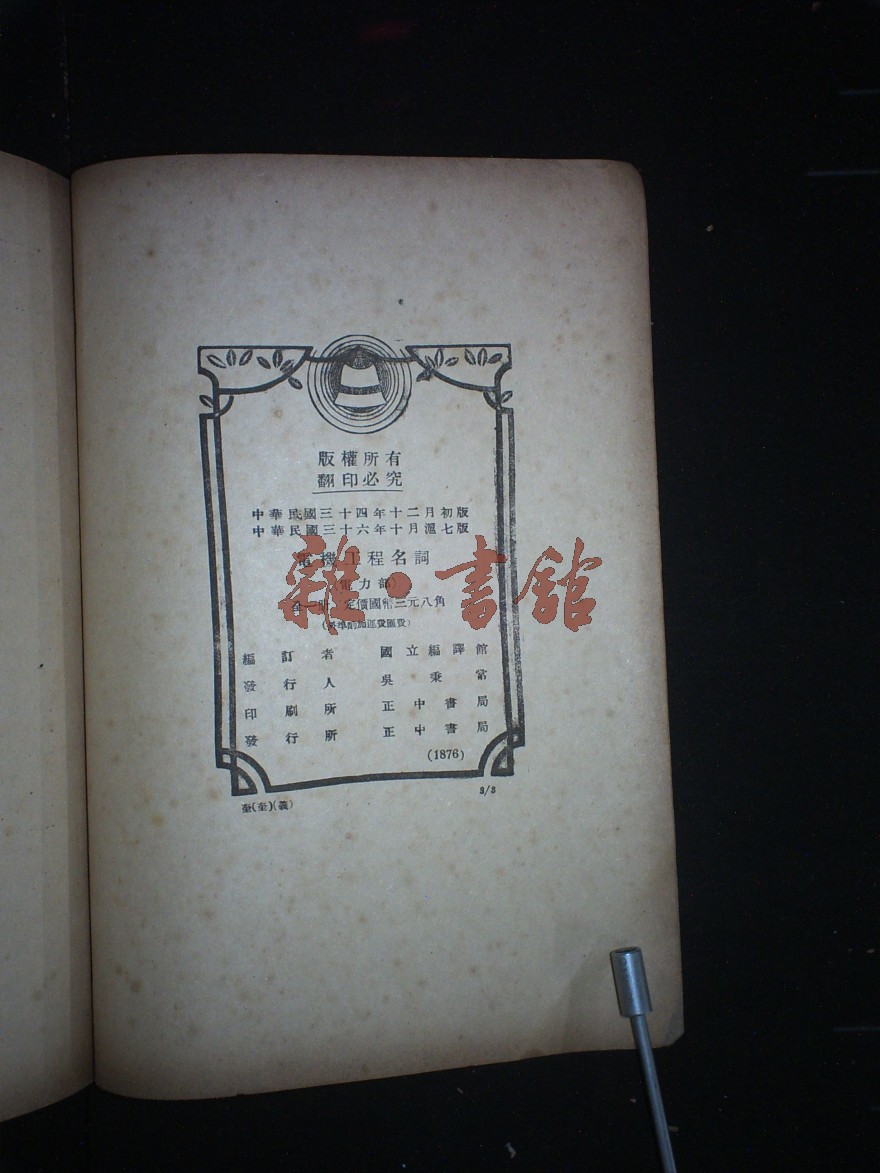 版權所有
翻印必究
中華民國三十四年十二月初版
中華民國三十六年十月滬七版
電機工程名詞
(電力部)
全一冊 定價國幣三元八角
(外埠酌加運費匯費)
編訂者 國立編譯館
發行人 吳秉常
印刷所 正中書局
發行所 正中書局
(1876)
(義) 3/3
雜·書館